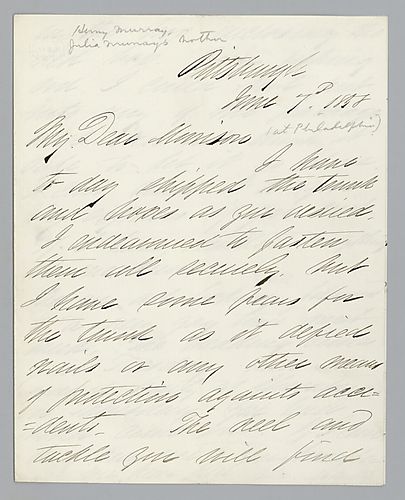 Henry Murray,
Julia Murray's mother
Pittsburgh
June 7th 1858
(at Philadelphia)
My Dear Morrison
I have
to day shipped the trunk
and boxes as you desired.
I endeavored to fasten
them all securely, but
I have some fears for
the trunk as it defied
nails or any other means
of protection against acci=
=dents. The reel and
tackle you will find